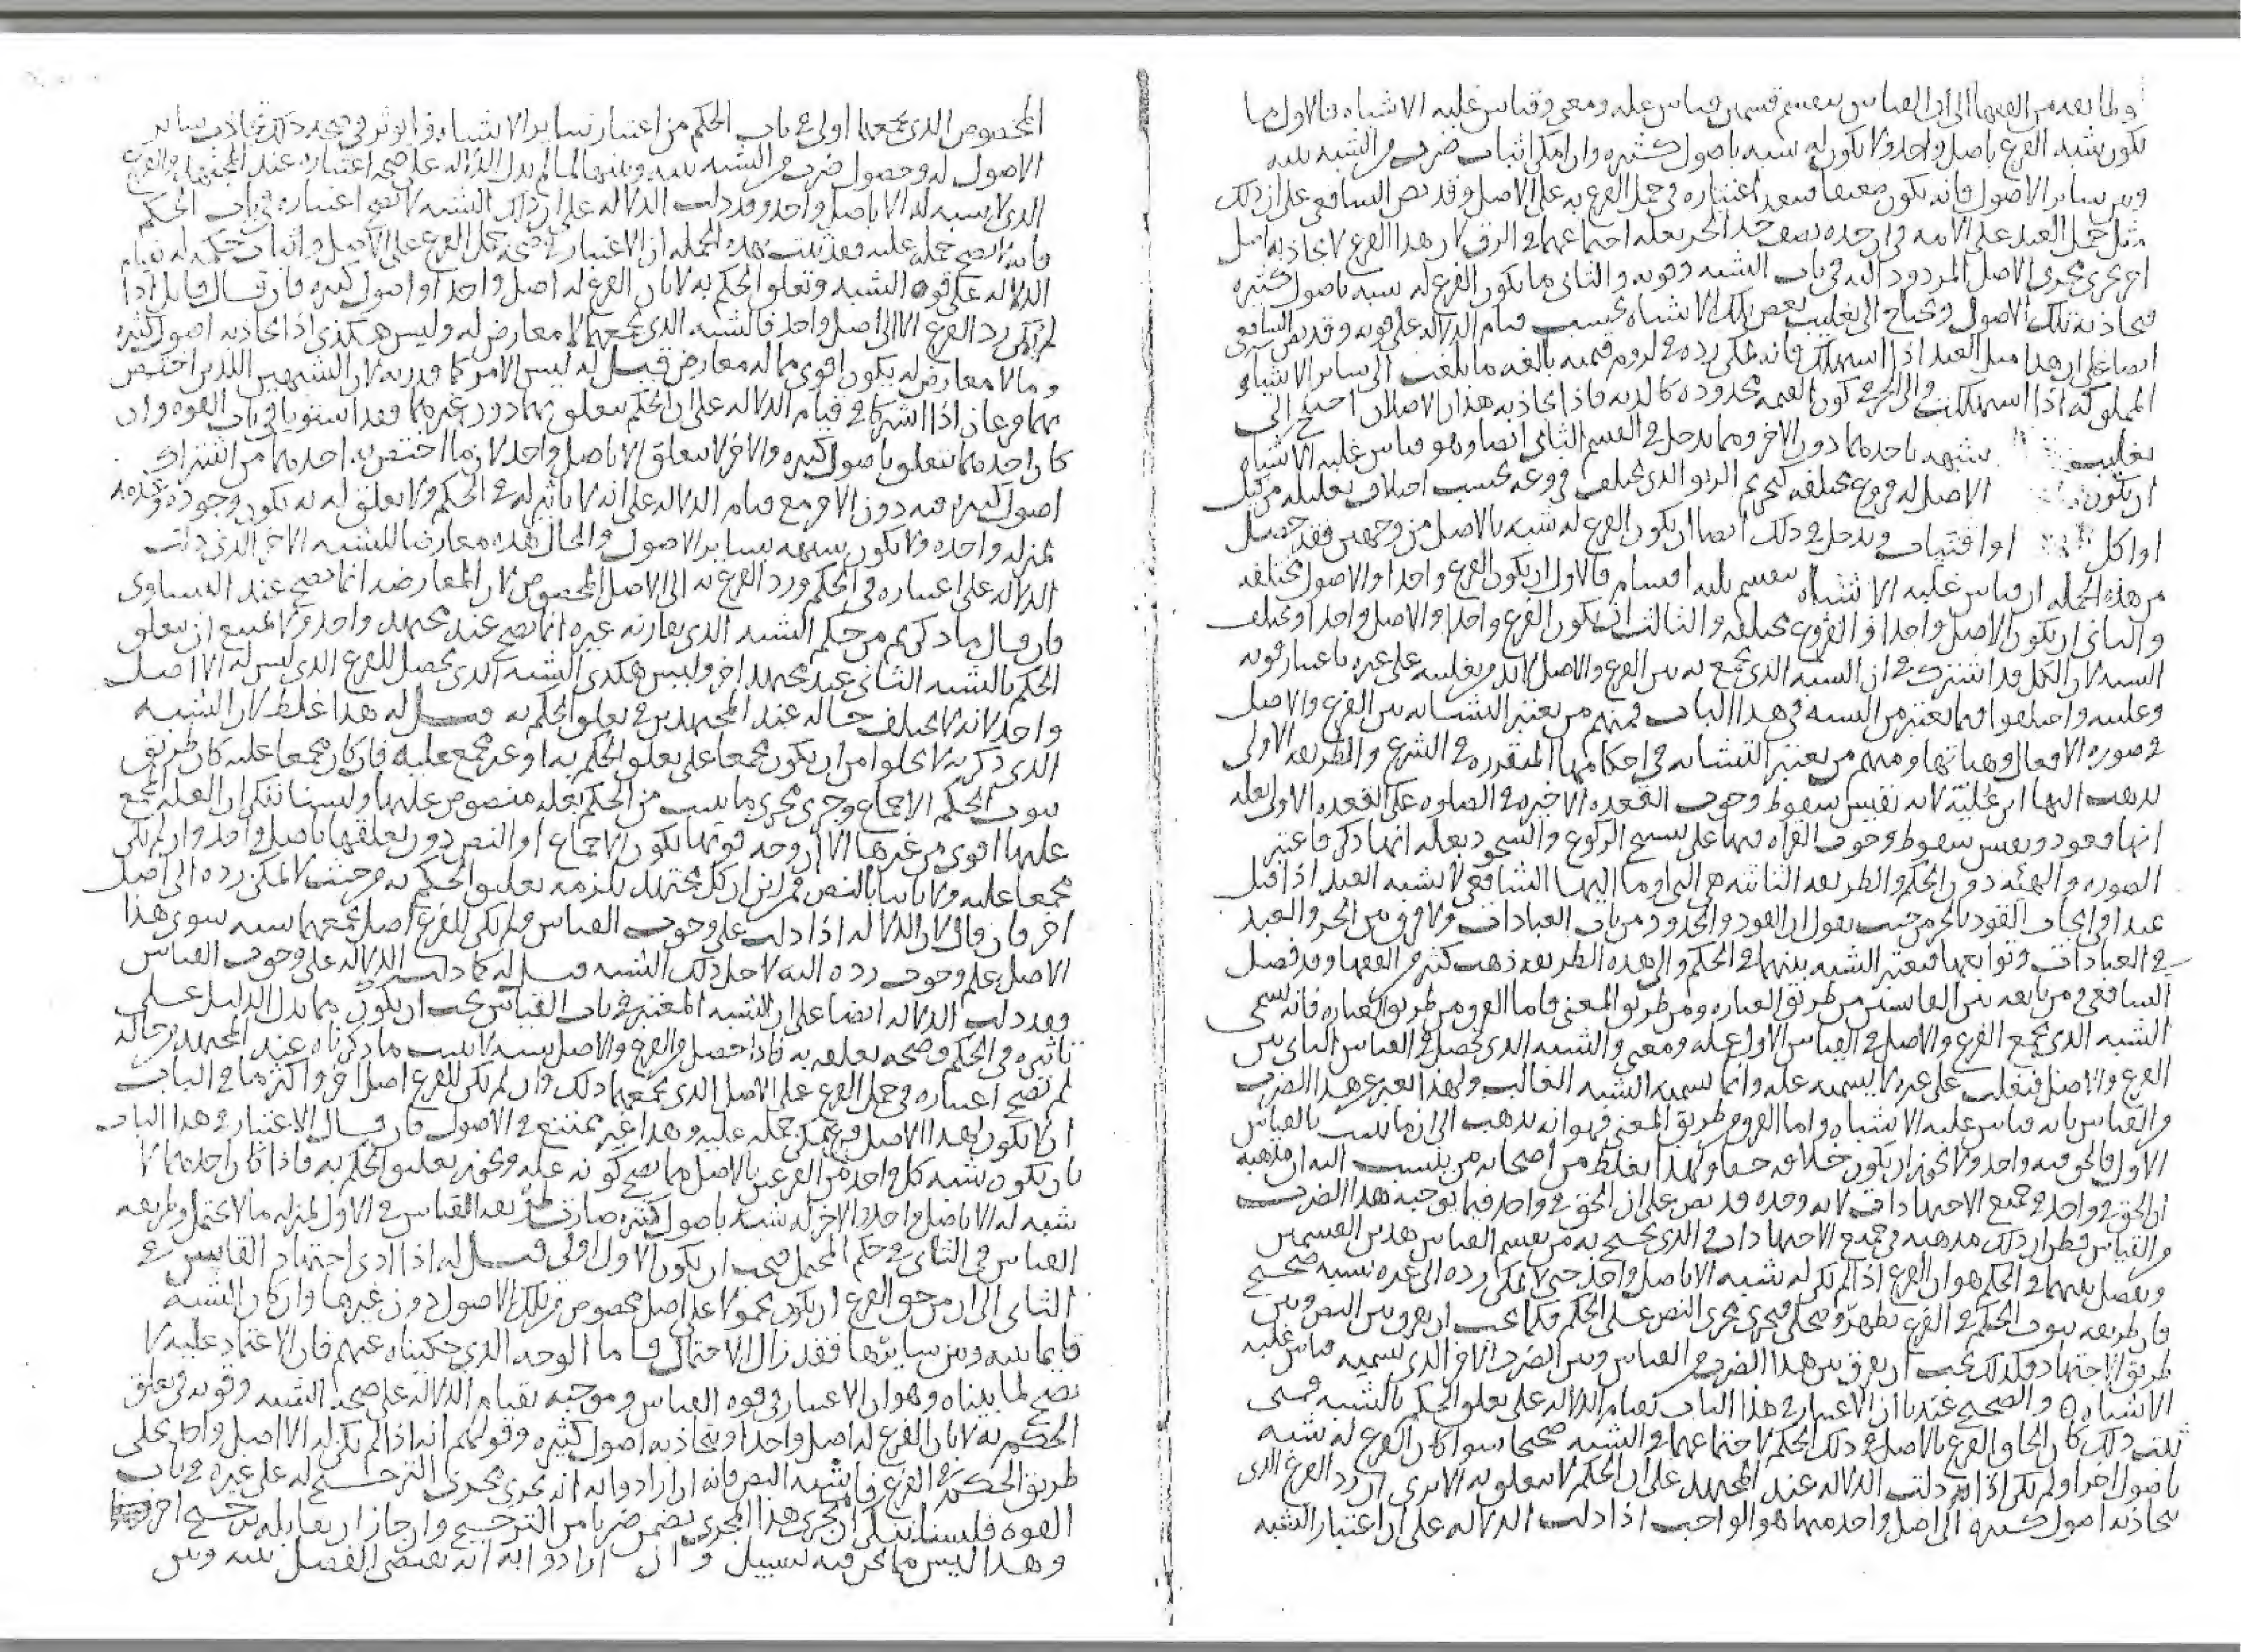 يكون شبه الفرع باصل واحد ولا يكون له شبه باصول كثيره وان امكن اثبات ضرب من الشبه بينه
وبين سائر الاصول فانه يكون ضعيفا اعتباره في حمل الفرع به على الاصل وقد نص الشافعي على ان ذلك
مثل حمل العبد على الامه في ان حده نصف حد الحر بعله اجتماعهما في الرق لان هذا الفرع لا يجاذبه اصل
اخر يجري مجرى الاصل المردود اليه في باب الشبه وقوته والثاني ما يكون الفرع له شبه باصول كثيره
فيجاذبه تلك الاصول ويحتاج الى تغليب بعض تلك الاشباه بحسب قيام الدلاله على قوته وقد نص الشافعي
ايضا على ان هذا مثل العبد اذا استهلك فانه يمكن رده في لزوم قيمته بالغه ما بلغت الى سائر الاشياء
المملوكه اذا استهلكت والى الحر في كون القيمه محدوده كالديه فاذا تجاذبه هذان الاصلان احتيج الى
تغليب شبهه باحدهما دون الاخر ومما يدخل في القسم الثاني ايضا وهو قياس غلبه الاشباه
ان يكون الاصل له فروع مختلفه كتحريم الربو الذي يختلف في فروعه بحسب اختلاف تعليله من كيل
او اكل او اقتيات ويدخل في ذلك ايضا ان يكون الفرع له شبه بالاصل من وجهين فقد حصل
من هذه الجمله ان قياس غلبه الاشباه ينقسم ثلثه اقسام فالاول ان يكون الفرع واحدا والاصول مختلفه
والثاني ان يكون الاصل واحدا والفروع مختلفه والثالث ان يكون الفرع واحدا والاصل واحدا ويختلف
الشبه لان الكل قد اشترك في ان الشبه الذي يجمع به بين الفرع والاصل لا بد من تغليبه على غيره باعتبار قوته
وغلبته واختلفوا فيما يعتبر من الشبه في هذا الباب فمنهم من يعتبر التشابه بين الفرع والاصل
في صوره الافعال وهياتها ومنهم من يعتبر التشابه في احكامها المتقرره في الشرع والطريقه الاولى
يذهب اليها ابن عليه لانه يقيس سقوط وجوب القعده الاخيره في الصلوه على القعده الاولى بعله
انها قعود ويقيس سقوط وجوب القراه فيها على تسبيح الركوع والسجود بعله انها ذكر فاعتبر
الصوره والهيئه دون الحكم والطريقه الثانيه هي التي اوما اليها الشافعي لانه شبه العبد اذا قتل
عبدا في ايجاب القود بالحر من حيث يقول ان القود والحدود من باب العبادات ولا فرق بين الحر والعبد
في العبادات وتوابعها فيعتبر الشبه بينهما في الحكم والى هذه الطريقه ذهب كثير من الفقها وقد فصل
الشافعي ومن تابعه بين القياسين من طريق العباره ومن طريق المعنى فاما الفرق من طريق العباره فانه يسمى
الشبه الذي يجمع الفرع والاصل في القياس الاول عله ومعنى والشبه الذي يحصل في القياس الثاني بين
الفرع والاصل فيغلب على غيره لا يسميه عله وانما يسميه الشبه الغالب ولهذا يعبر عن هذا الضرب
من القياس بانه قياس غلبه الاشباه واما الفرق من طريق المعنى فهو انه يذهب الى ان ما يثبت بالقياس
الاول فالحق فيه واحد ولا يجوز ان يكون خلافه حقا ولهذا يغلط من اصحابه من ينسب اليه ان مذهبه
ان الحق في واحد في جميع الاجتهادات لانه وحده قد نص على ان الحق في واحد فيما يوجبه هذا الضرب
من القياس فظن ان ذلك مذهبه في جميع الاجتهادات والذي يحتج به من يقسم القياس هذين القسمين
ويفصل بينهما في الحكم هو ان الفرع اذا لم يكن له شبه الا باصل واحد حتى لا يمكن رده الى غيره بشبه صحيح
فان طريقه ثبوت الحكم في الفرع تظهر وتتجلى فيجري مجرى النص على الحكم فكما يجب ان يفرق بين النص وبين
طريق الاجتهاد فكذلك يجب ان يفرق بين هذا الضرب من القياس وبين الضرب الاخر الذي نسميه قياس غلبه
الاشباه والصحيح عندنا ان الاعتبار في هذا الباب بقيام الدلاله على تعلق الحكم بالشبه فمتى
ثبت ذلك كان الحاق الفرع بالاصل في ذلك الحكم لاجتماعهما في الشبه صحيحا سوا كان الفرع له شبه
باصول اخر او لم يكن اذا دلت الدلاله عند المجتهد على ان الحكم لا يتعلق به الا ترى ان رد الفرع الذي
تجاذبه اصول كثيره الى اصل واحد منهما هو الواجب اذا دلت الدلاله على ان اعتبار الشبه
المخصوص الذي يجمعهما اولى في باب الحكم من اعتبار سائر الاشباه
الاصول له وحصول ضرب من الشبه بينه وبينها لما لم يدل الدلاله على صحه اعتباره عند المجتهد والفرع
الذي لا شبه له الا باصل واحد وقد دلت الدلاله على ان ذلك الشبه لا يصح اعتباره في باب الحكم
فانه لا يصح حمله عليه فقد ثبت بهذه الجمله ان الاعتبار في صحه حمل الفرع على الاصل واثبات حكمه له بقيام
الدلاله على قوه الشبه وتعلق الحكم به لا بان الفرع له اصل واحد او اصول كثيره فان قال قائل اذا
لم يمكن رد الفرع الا الى اصل واحد فالشبه الذي يجمعهما لا معارض له وليس هكذى اذا تجاذبه اصول كثيره
وما لا معارض له يكون اقوى مما له معارض قيل له ليس الامر كما قدرته لان الشبهين اللذين اختص
بهما فرعان اذا اشتركا في قيام الدلاله على ان الحكم يتعلق بهما دون غيرهما فقد استويا في باب القوه وان
كان احدهما يتعلق باصول كثيره والاخر لا يتعلق الا باصل واحد لان ما اختص به احدهما من اشتراك
اصول كثيره فيه دون الاخر مع قيام الدلاله على انه لا تاثير له في الحكم ولا تعلق له به يكون وجوده وعدمه
بمنزله واحده ولا يكون شبهه بسائر الاصول والحال هذه معارضا للشبه الاخر الذي دلت
الدلاله على اعتباره في الحكم ورد الفرع به الى الاصل المخصوص لان المعارضه انما تصح عند التساوي
فان قال ما ذكرتم من حكم الشبه الذي يقارنه غيره انما يصح عند مجتهد واحد ولا يمتنع ان يتعلق
الحكم بالشبه الثاني عند مجتهد اخر وليس هكذى الشبه الذي يحصل للفرع الذي ليس له الا اصل
واحد لانه لا يختلف حاله عند المجتهدين في تعلق الحكم به قيل له هذا غلط لان الشبه
الذي ذكرته لا يخلوا من ان يكون مجمعا على تعلق الحكم به او غير مجمع عليه فان كان مجمعا عليه كان طريق
ثبوت الحكم الاجماع وجرى مجرى ما يثبت من الحكم بعله منصوص عليها ولسنا ننكر ان العله المجمع
عليها اقوى من غيرها الا ان وجه قوتها يكون الاجماع او النص دون تعلقها باصل واحد وان لم يكن
مجمعا عليه ولا ثابتا بالنص فمن اين ان كل مجتهد يلزمه تعليق الحكم به من حيث لا يمكن رده الى اصل
اخر فان قال لان الدلاله اذا دلت على وجوب القياس ولم يكن للفرع اصل يجمعهما شبه سوى هذا
الاصل علم وجوب رده اليه لاجل ذلك الشبه قيل له كما دلت الدلاله على وجوب القياس
فقد دلت الدلاله ايضا على ان الشبه المعتبر في باب القياس يجب ان يكون مما يدل الدليل على
تاثيره في الحكم وصحه تعلقه به فاذا حصل من الفرع والاصل شبه لا يثبت ما ذكرناه عند المجتهد من حاله
لم يصح اعتباره في حمل الفرع على الاصل الذي يجمعهما ذلك وان لم يكن للفرع اصل اخر واكثر ما في الباب
ان لا يكون لهذا الاصل فرع يمكن حمله عليه وهذا غير ممتنع في الاصول فان قال الاعتبار في هذا الباب
بان يكون شبه كل واحد من الفرعين بالاصل مما يصح كونه عله ويجوز تعليق الحكم به فاذا كان احدهما لا
شبه له الا باصل واحد والاخر له شبه باصول كثيره صارت طريقه القياس في الاول بمنزله ما لا يحتمل وطريقه
القياس في الثاني في حكم المحتمل فيجب ان يكون الاول اولى قيل له اذا ادى اجتهاد القايس في
الثاني الى ان من حق الفرع ان يكون محمولا على اصل مخصوص من تلك الاصول دون غيرها وان كان الشبه
قايما بينه وبين سائرها فقد زال الاحتمال فاما الوجه الذي حكيناه عنهم فان الاعتماد عليه لا
يصح لما بيناه وهو ان الاعتبار في قوه القياس وموجبه بقيام الدلاله على صحه الشبه وقوته في تعلق
الحكم به لا بان الفرع له اصل واحد او تجاذبه اصول كثيره وقولهم انه اذا لم يكن له الا اصل واحد تجلى
طريق الحكم في الفرع فاشبه النص فانه ان ارادوا به انه يجري مجرى الترجيح له على غيره في باب
القوه فلسنا ننكر ان يجري هذا المجرى تضمن ضربا من الترجيح وان جاز ان يقابله ترجيح اخر
وهذا ليس مما نحن فيه بسبيل وان ارادوا به انه يقتضي الفصل بينه وبين